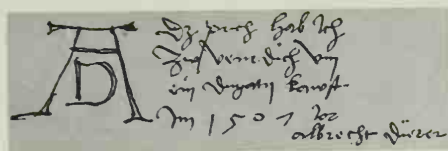 AD
Dz puch hab ich
zw venedich vm
ein dugatn kawft
Im 1507 jor
albrecht dürer